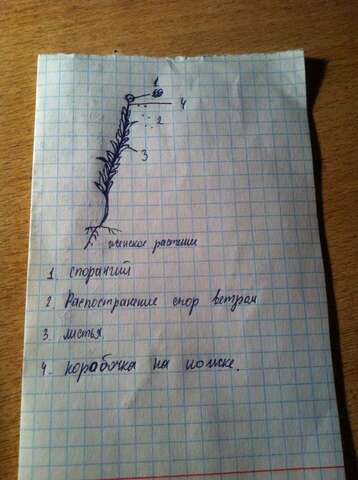 1
4
2
3
женское растение
1. спорангий
2. Распостранение спор ветром
3 листья
4. коробочка на ножке.